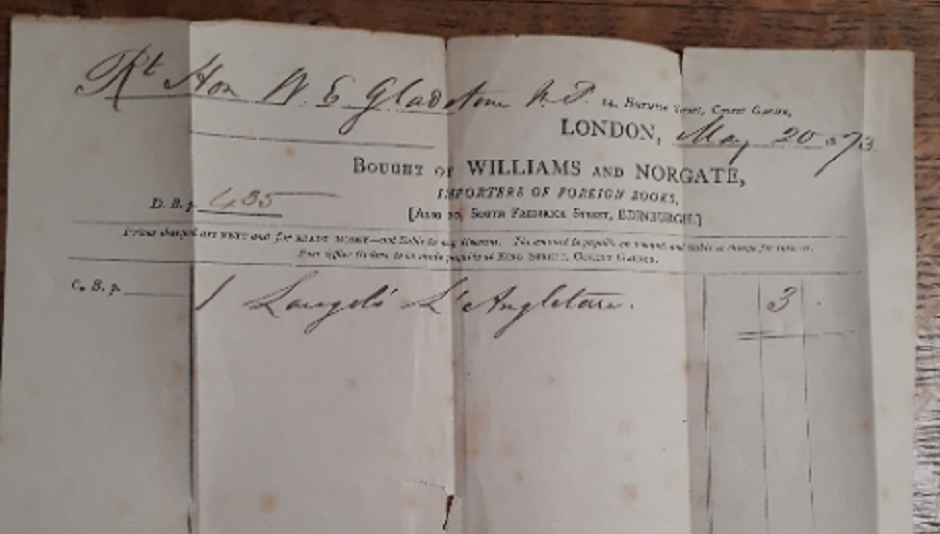 Rt Hon W. E Gladstone M.P.
14, Henrietta Street, Covent Garden,
LONDON, May 20 1873.
BOUGHT OF WILLIAMS AND NORGATE,
IMPORTERS OF FOREIGN BOOKS,
D. B. p. 435
[ALSO 20, SOUTH FREDERICK STREET, EDINBURGH.]
Prices charged are NETT and for READY MONEY—not liable to any discount. No account is payable on
Post Office Orders to be made payable at KING STREET, COVENT GARDEN.
C. B. p.
1 L'Angleterre. 3 .